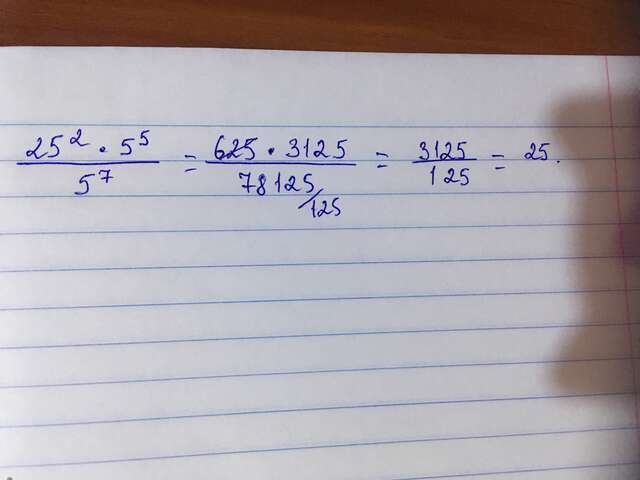 25² · 5⁵ / 5⁷ = 625 · 3125 / 78125 = 3125 / 125 = 25.
125